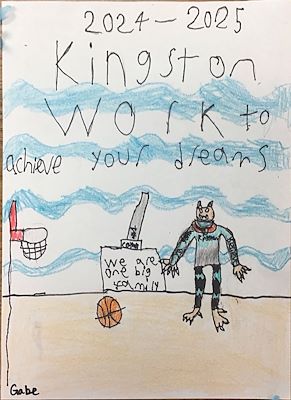 2024-2025
Kingston
Work to
achieve your dreams
We are
one big
family
Gabe